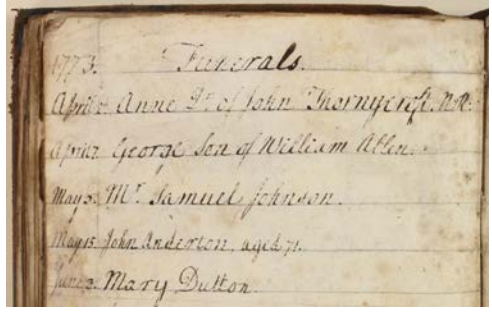 1773. Funerals.
April Anne Dr. of John Thornycroft. N.W.
April George Son of William Allen.
May 5. Mr. Samuel Johnson.
May 15. John Anderton, aged 71.
June 3. Mary Dutton.